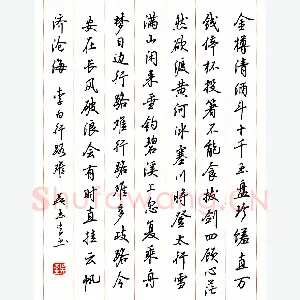 金樽清酒斗十千玉盘珍馐直万
钱停杯投箸不能食拔剑四顾心茫
然欲渡黄河冰塞川将登太行雪
满山闲来垂钓碧溪上忽复乘舟
梦日边行路难行路难多歧路今
安在长风破浪会有时直挂云帆
济沧海 李白行路难